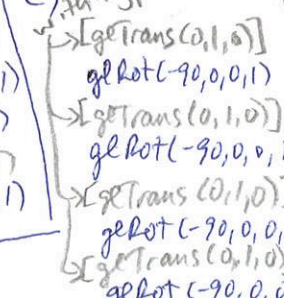 [glTrans(0,1,0)]
1) glRot(-90,0,0,1)
) [glTrans(0,1,0)]
) glRot(-90,0,0,
1) [glTrans(0,1,0)
glRot(-90,0,0,
[glTrans(0,1,0)
glRot(-90,0,0